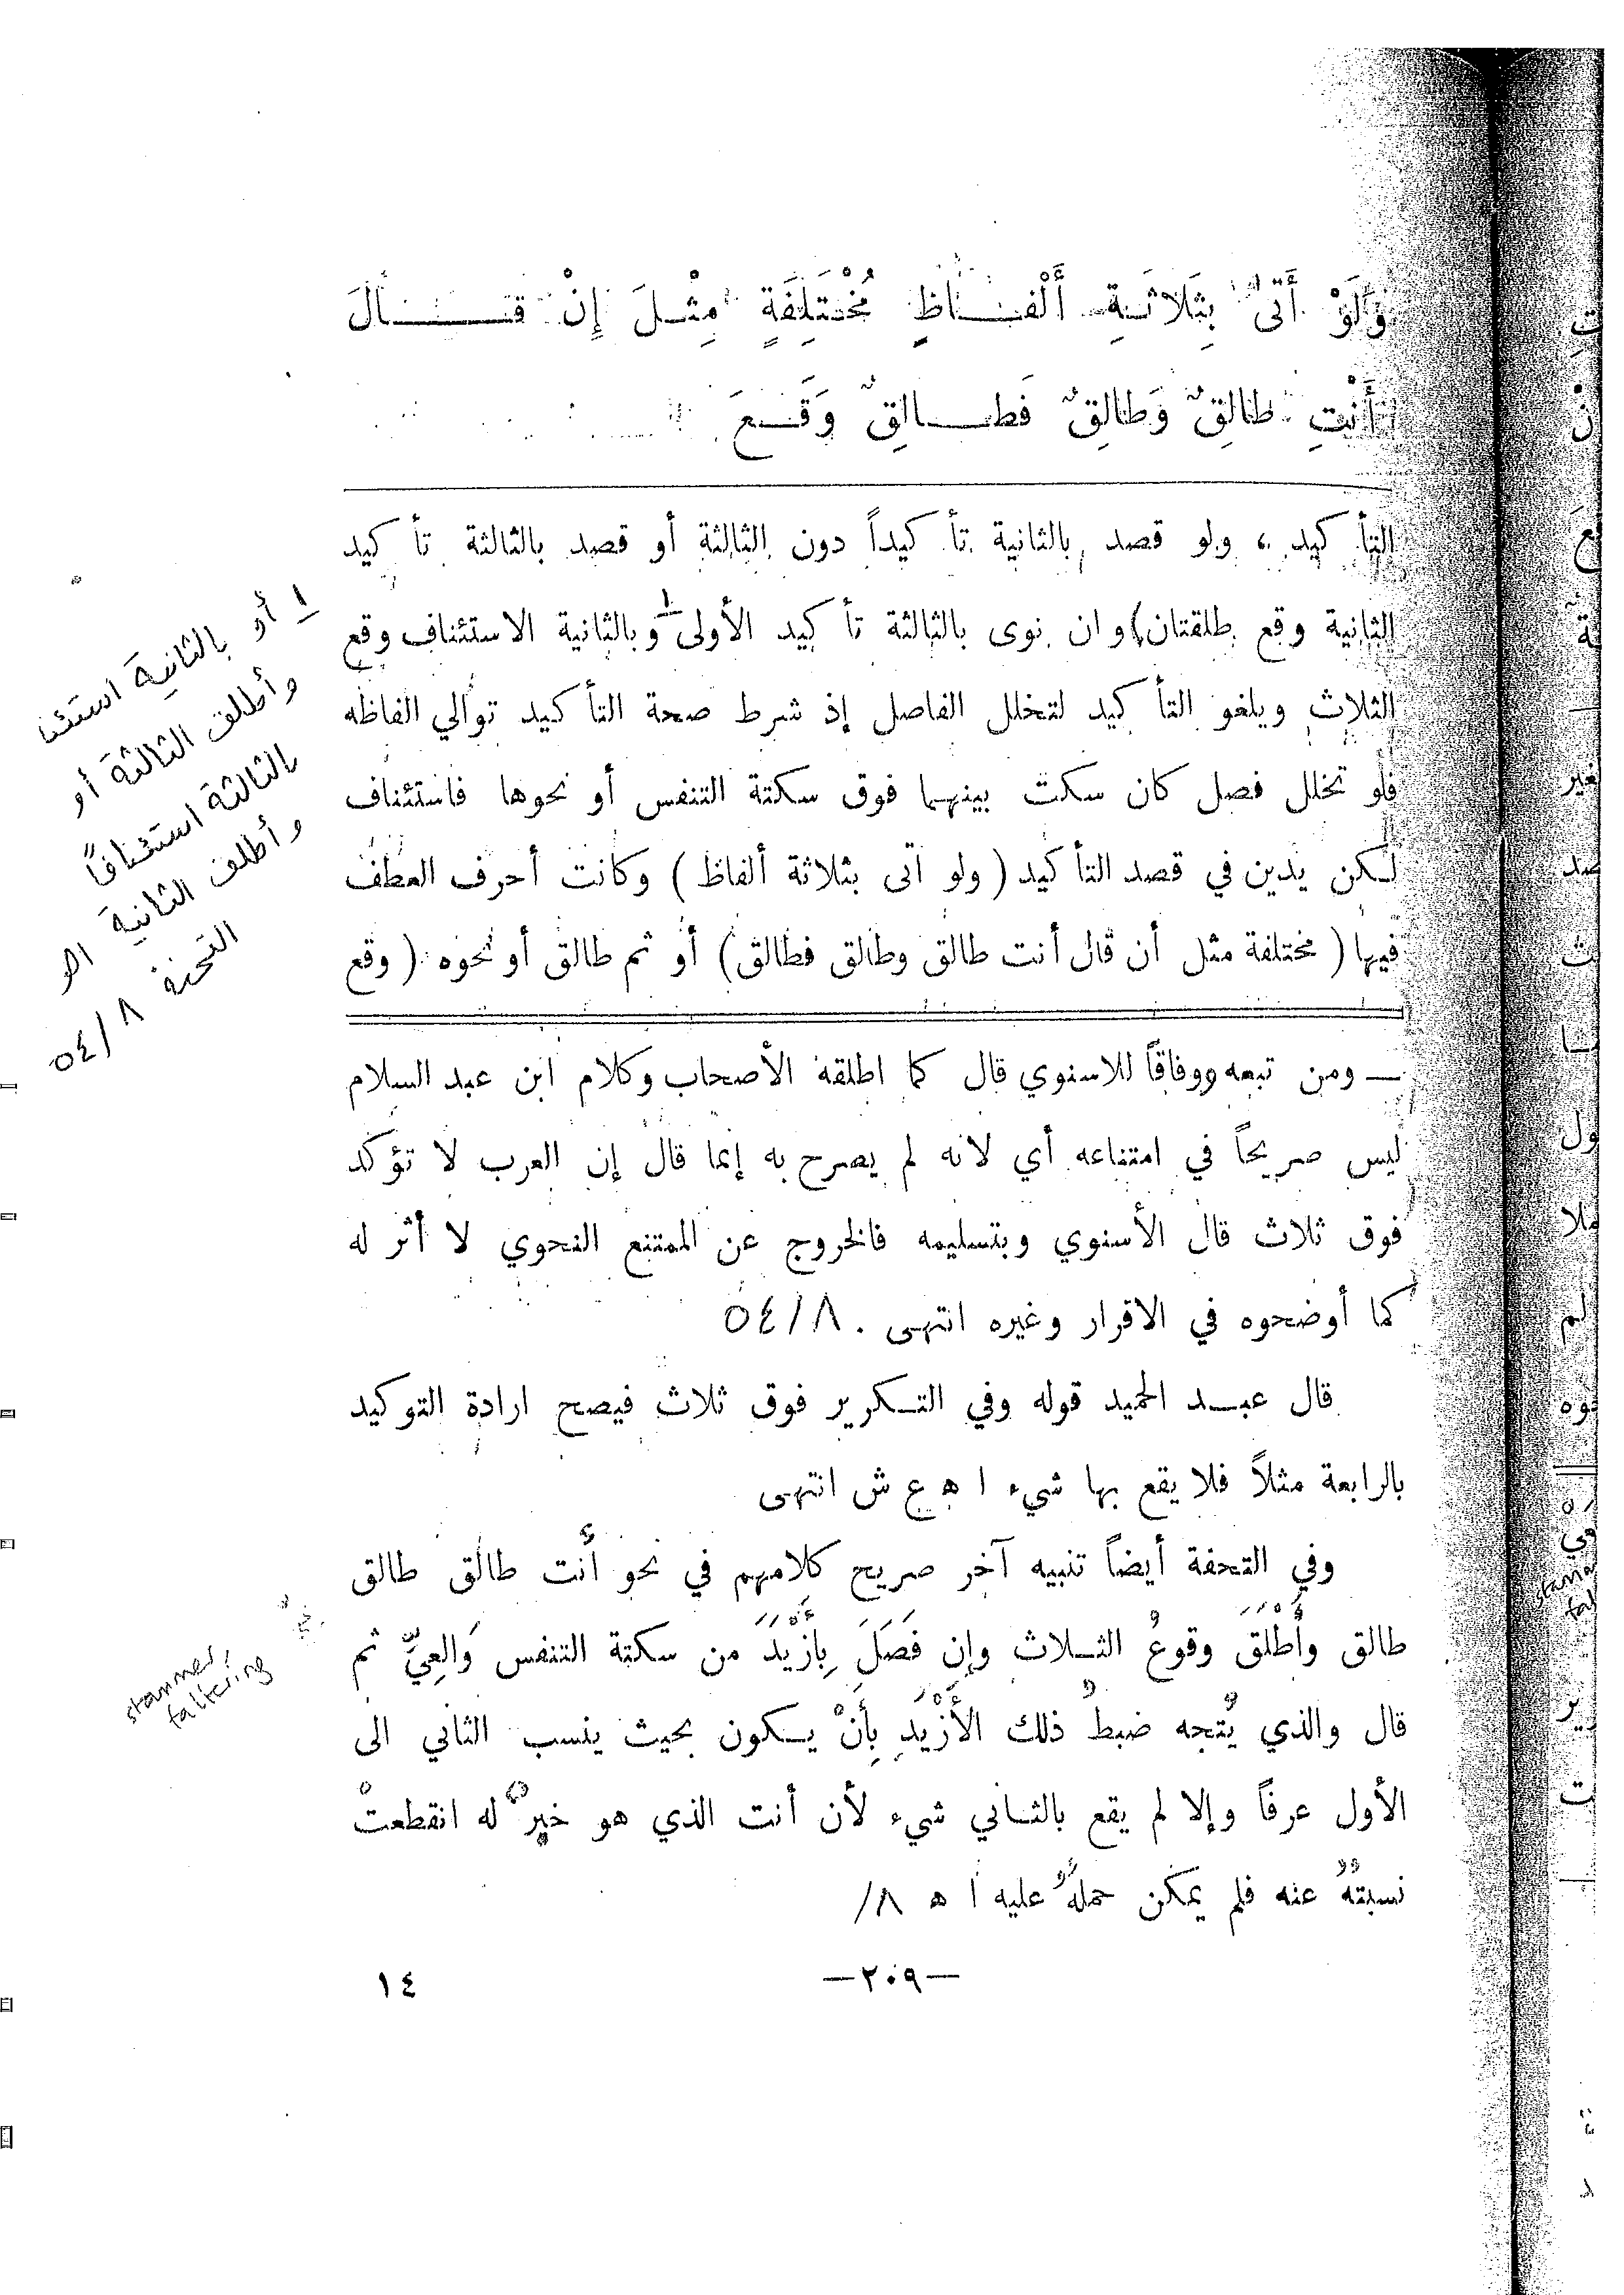 وَلَوْ أَتَىٰ بِثَلَاثَـةِ أَلْفَـاظٍ مُخْتَلِفَةٍ مِثْـلَ إِنْ قَـالَ
أَنْتِ طَالِقٌ وَطَالِقٌ فَطَـالِقٌ وَقَـعَ
التأكيد ، ولو قصد بالثانية تأكيداً دون الثالثة أو قصد بالثالثة تأكيد
الثانية وقع طلقتان) وان نوى بالثالثة تأكيد الأولى ١ وبالثانية الاستئناف وقع
الثلاث ويلغو التأكيد لتخلل الفاصل إذ شرط صحة التأكيد توالي الفاظه
فلو تخلل فصل كان سكت بينهما فوق سكتة التنفس أو نحوها فاستئناف
لكن يدين في قصد التأكيد ( ولو أتى بثلاثة ألفاظ ) وكانت أحرف العطف
فيها ( مختلفة مثل أن قال أنت طالق وطالق فطالق ) أو ثم طالق أو نحوه ( وقع
١ أو بالثانية استئنا
وأطلق الثالثة أو
بالثالثة استئنافاً
وأطلق الثانية اهـ
التحفة ٥٤/٨
— ومن تبعه ووفاقاً للاسنوي قال كما اطلقه الأصحاب وكلام ابن عبد السلام
ليس صريحاً في امتناعه أي لانه لم يصرح به إنما قال إن العرب لا تؤكد
فوق ثلاث قال الأسنوي وبتسليمه فالخروج عن الممتنع النحوي لا أثر له
كما أوضحوه في الاقرار وغيره انتهى . ٥٤/٨
قال عبـد الحميد قوله وفي التـكرير فوق ثلاث فيصح ارادة التوكيد
بالرابعة مثلاً فلا يقع بها شيء ا ه ع ش انتهى
وفي التحفة أيضاً تنبيه آخر صريح كلامهم في نحو أنت طالق طالق
طالق وأَطْلَقَ وقوعُ الثـلاث وإن فَصَلَ بِأَزْيَدَ من سكتة التنفس وَالعِيِّ ثم
stammer,
faltering
قال والذي يُتجه ضبطُ ذلك الأَزْيَدِ بِأَنْ يـكون بحيث ينسب الثاني الى
الأول عرفاً وإلا لم يقع بالثـاني شيء لأن أنت الذي هو خبرٌ له انقطعتْ
نسبتهُ عنه فلم يمكن حملُهُ عليه ا ه ٨/
—٢٠٩—
١٤